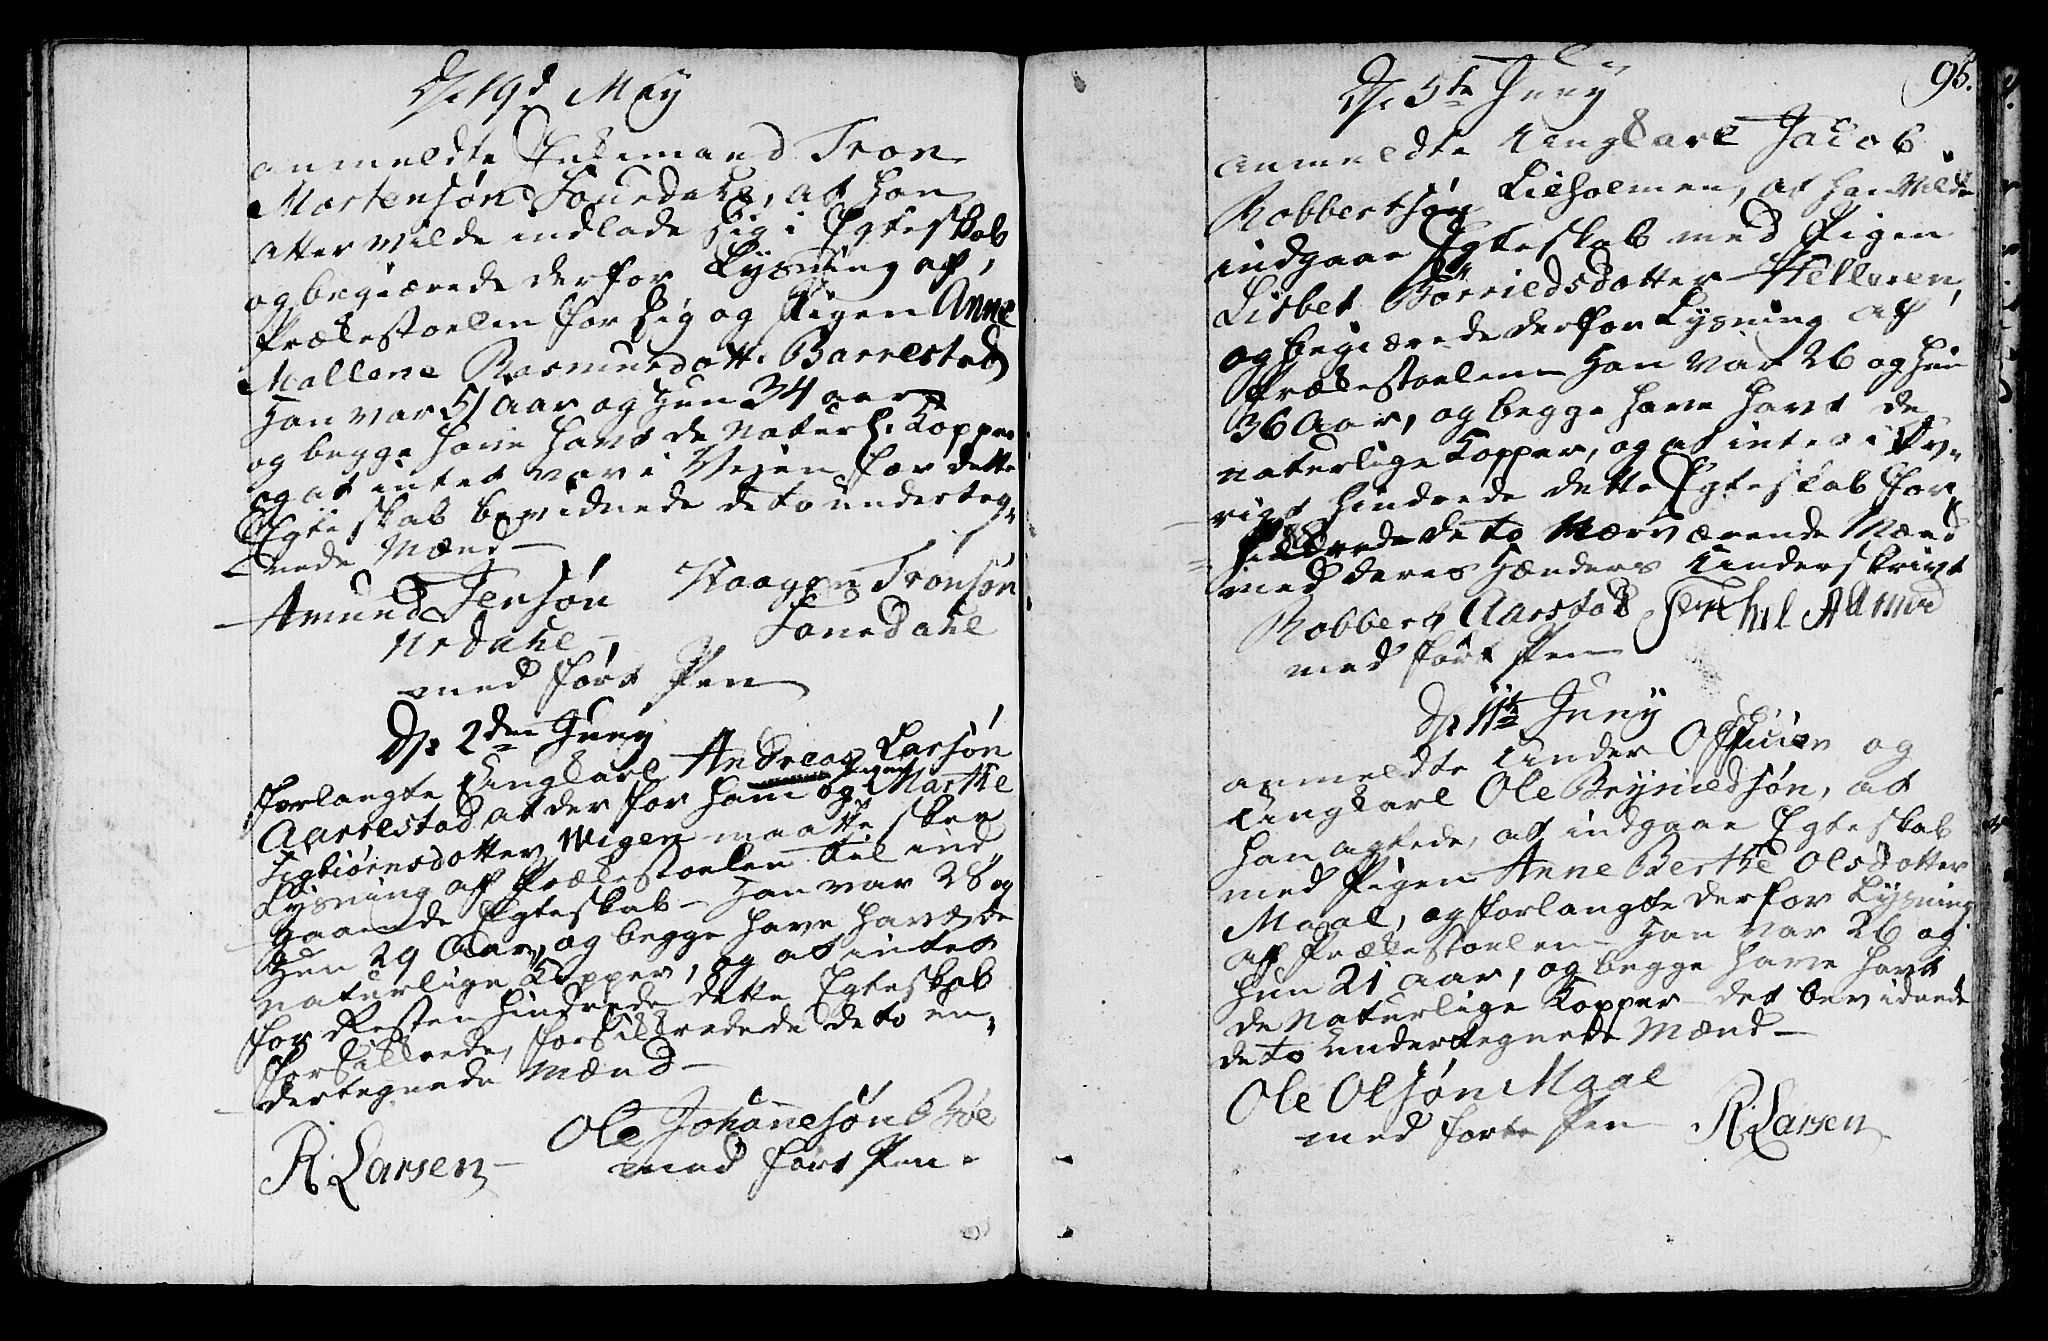 D. 19d May
anmeldte Enkemand Tron
Mortensøn Fouedahl, at han
atter vilde indlade sig i Egteskab
og begiærede derfor Lysning af
Prækestoelen for sig og Pigen Anne
Mallene Rasmusdott: Barrestad
Han var 51 Aar og Hun 34 aar
og begge have havt de naturl: Kopper
og at intet var i Vejen for dette
Egteskab bevidnede de to underteg-
nede Mænd
Amund Jensøn Haagen Tronsøn
Urdahl Fouedahl
med ført Pen
D. 2den Juny
forlangte Ungkarl Andreas Larsøn
Aarrestad at der for ham og Marthe
Sigbiørnsdotter Wigen maatte skee
Lysning af Prækestoelen til ind
gaaende Egteskab Han var 28 og
Hun 29 Aar, og begge have havt de
naturlige Kopper, og at intet
for Resten hindrede dette Egteskab
forsikrede, forsikrede de to un-
dertegnede Mænd
Ole Johannesøn Bøe
R. Larsen med ført Pen
95.
D. 5te Juny
anmeldte Ungkarl Jacob
Robbertsøn Lieholmen, at han vilde
indgaae Egteskab med Pigen
Lisbet Börrildsdotter Helleren,
og begiærede derfor Lysning af
Prækestoelen Han var 26 og hun
36 Aar, og begge have havt de
naturlige Kopper, og at intet i Øv-
rigt hindrede dette Egteskab for
sikrede de to nærværende Mænd
med deres Hænders Underskrivt
Robbert Aarstad
med ført Pen
D. 11te Juny
anmeldte Under Officier og
Ungkarl Ole Brynildsøn, at
han agtede, at indgaae Egteskab
med Pigen Anne Berthe Olsdotter
Maal, og forlangte derfor Lysning
af Prækestoelen Han var 26 og
hun 21 aar, og begge have havt
de Naturlige Kopper det bevidnede
de to Undertegnede Mænd
Ole Olsøn Maal
med førte Pen R. Larsen